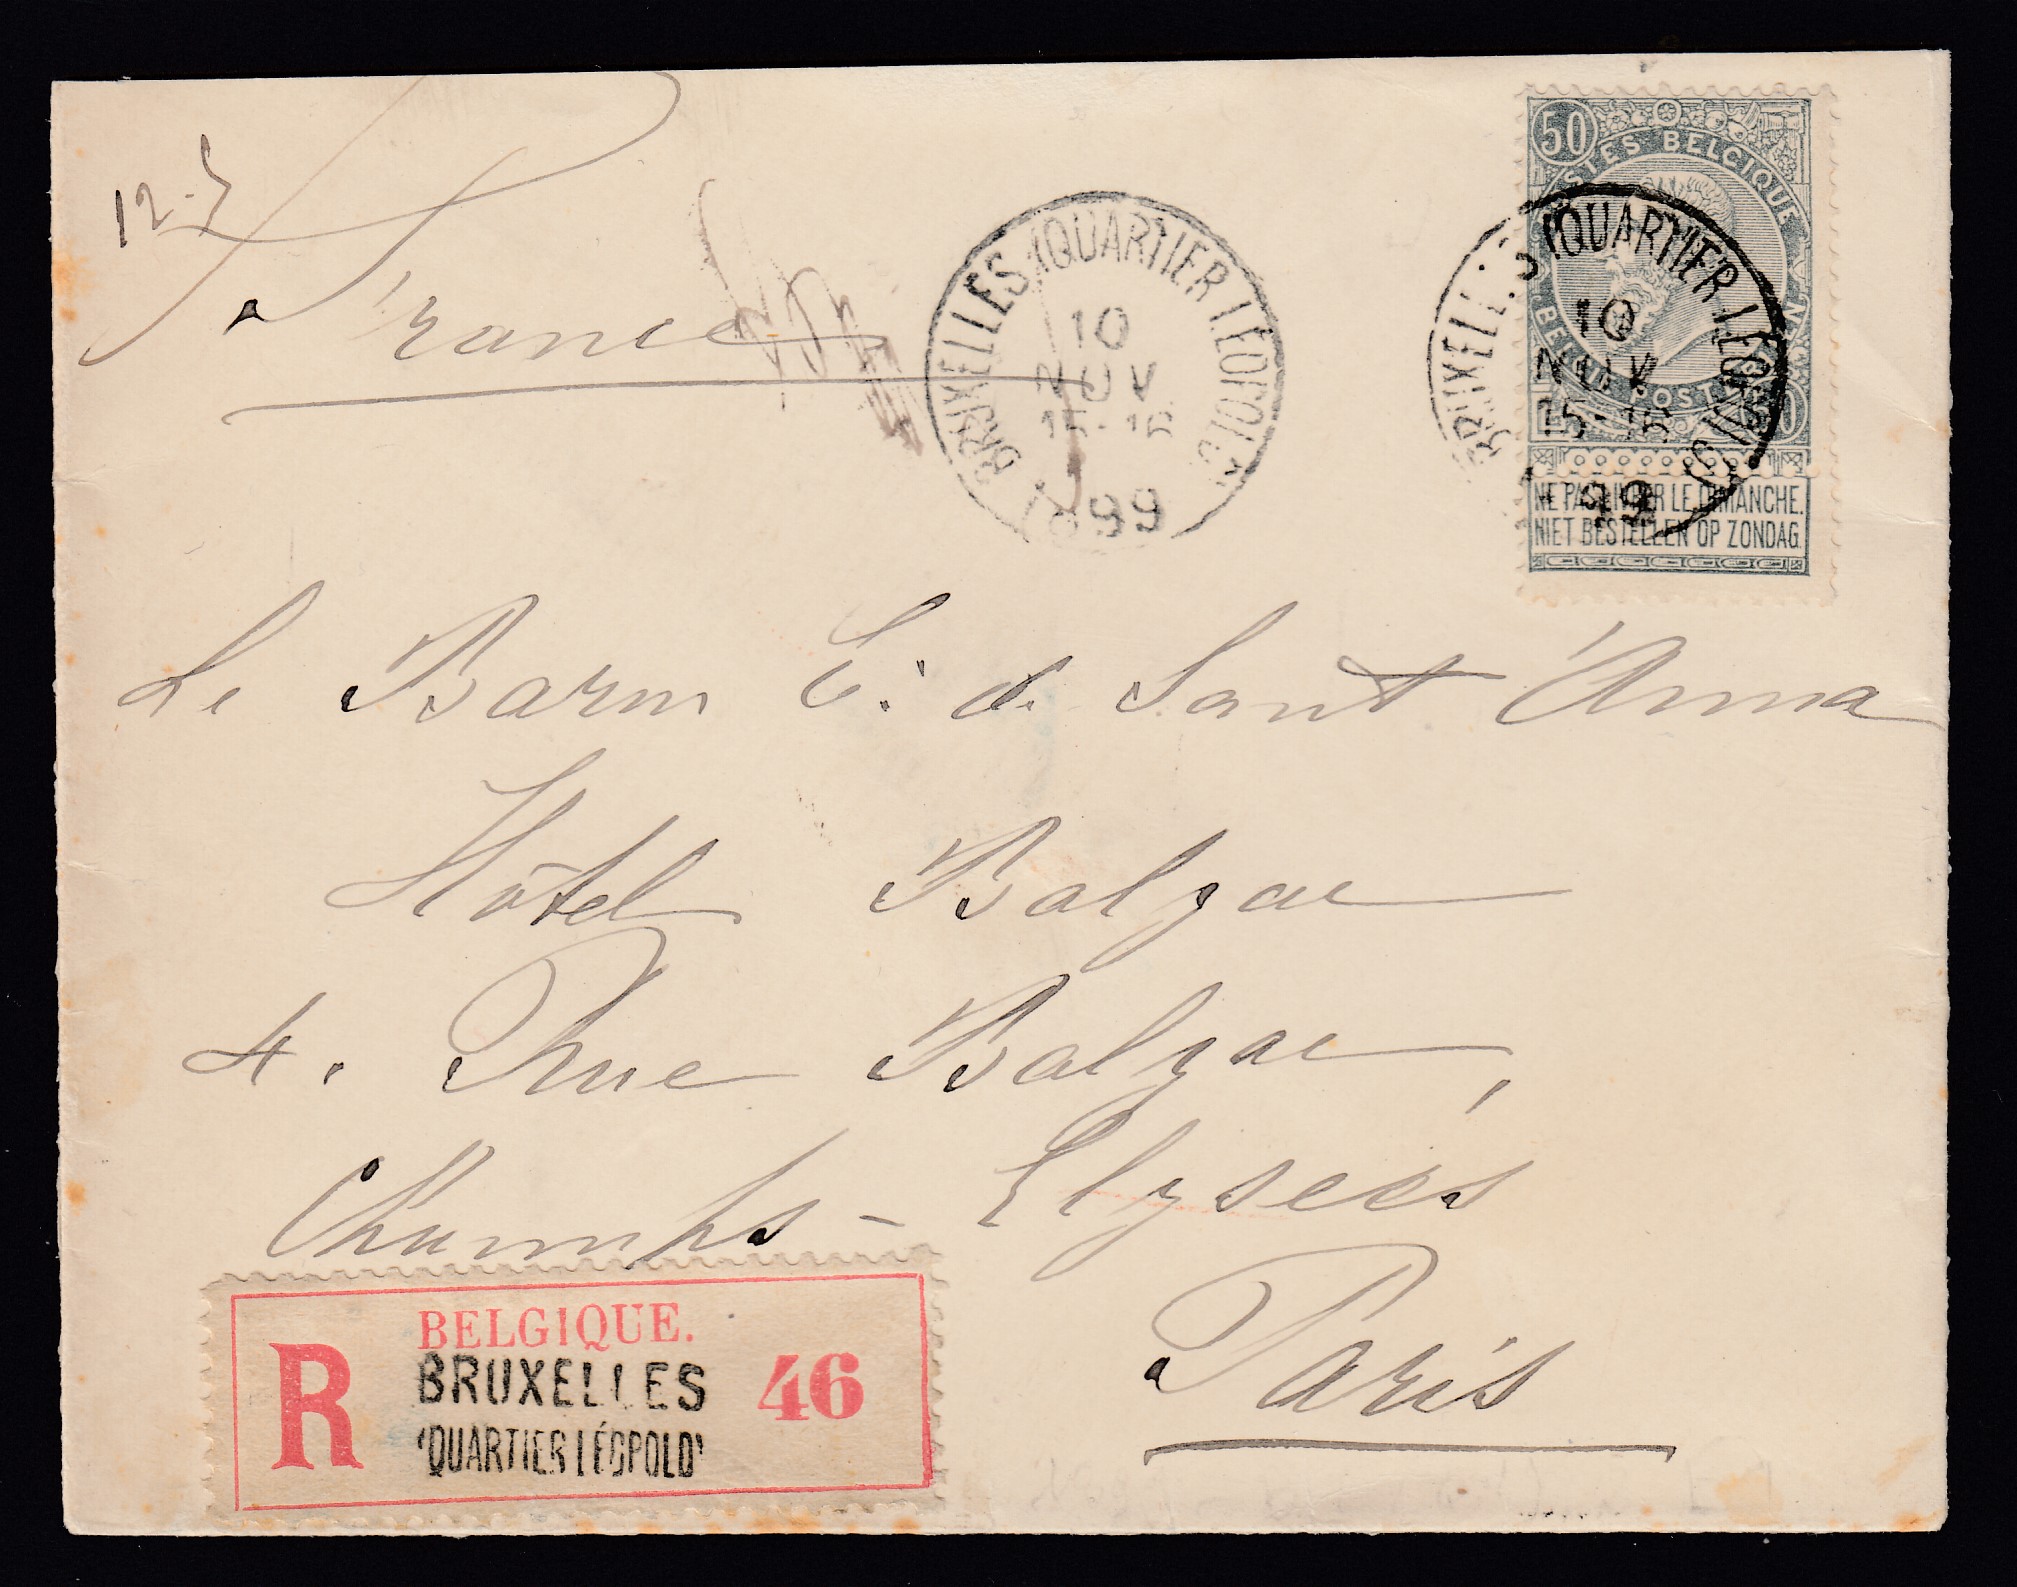 12-5
France
BRUXELLES (QUARTIER LÉOPOLD)
10
NOV
15-16
1899
50
POSTES BELGIQUE
BELG. POST
BRUXELLES (QUARTIER LÉOPOLD)
10
NOV
15-16
1899
NE PAS LIVRER LE DIMANCHE.
NIET BESTELLEN OP ZONDAG.
Le Baron E. de Sant'Anna
Hôtel Balzac
4. Rue Balzac,
Champs-Elysées
Paris
BELGIQUE.
R BRUXELLES 46
(QUARTIER LÉOPOLD)